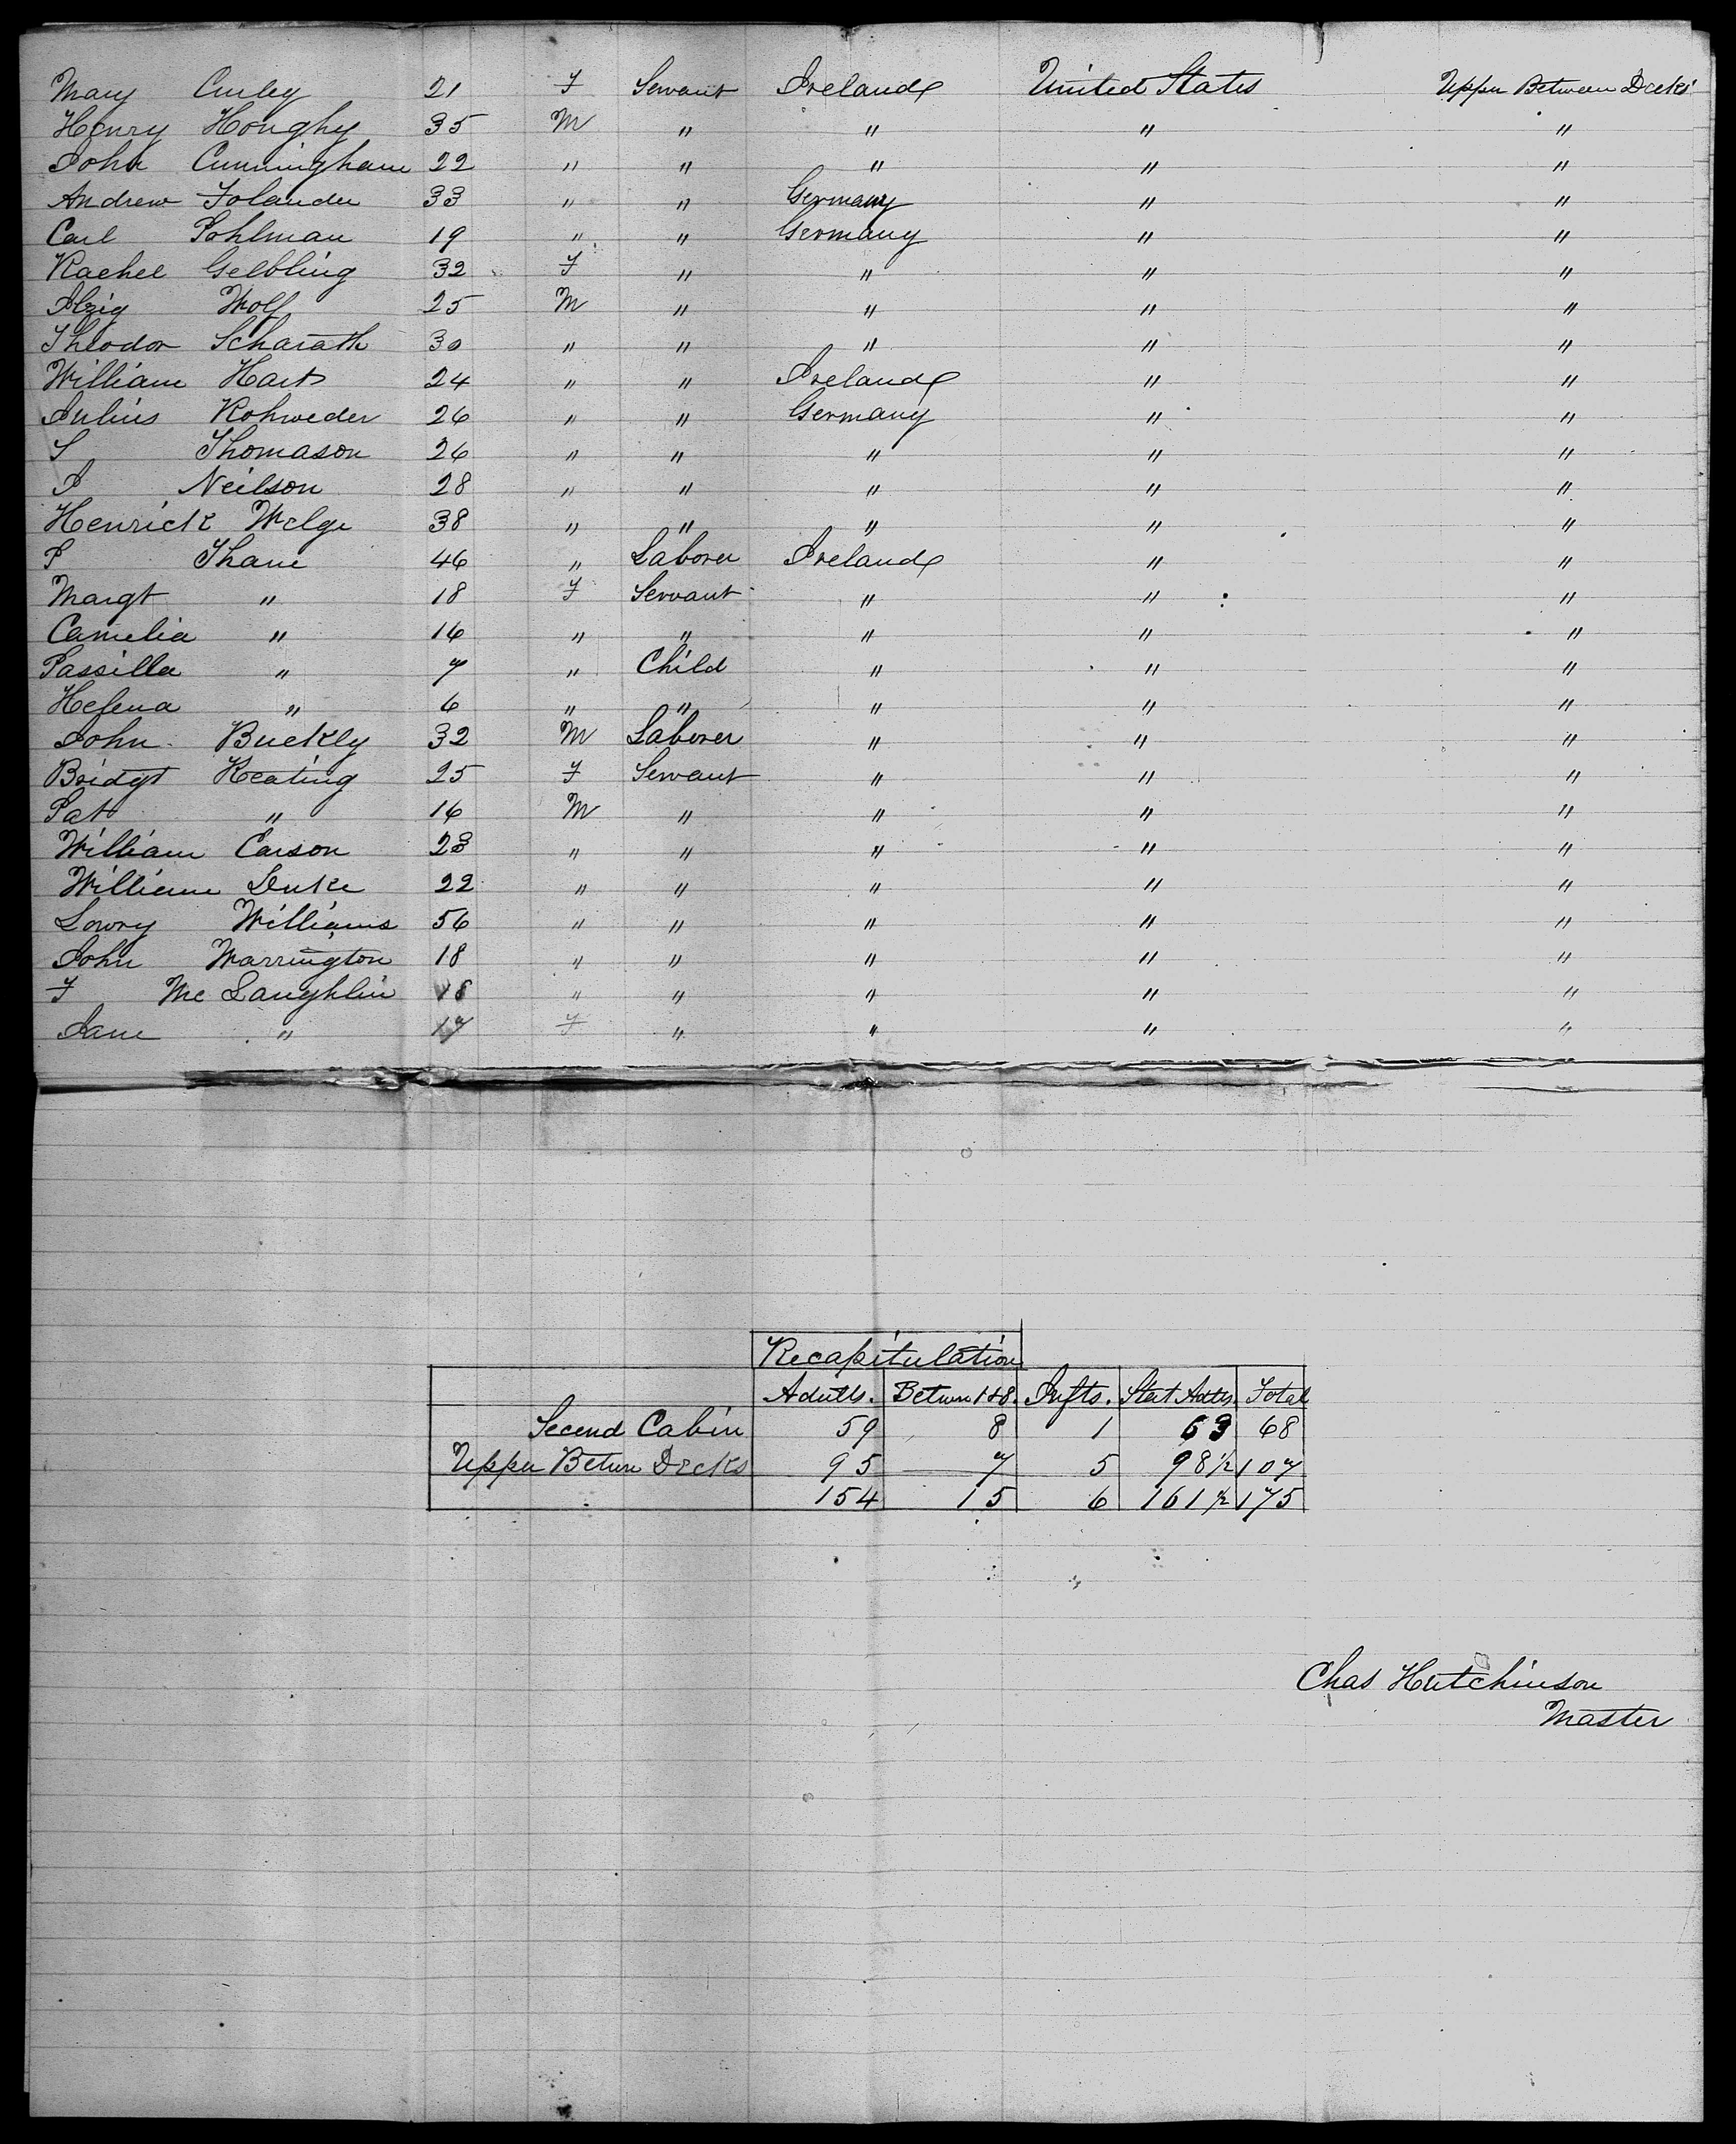 Mary Curley 21 F Servant Ireland United States Upper Between Decks
Henry Honghy 35 M " " " "
John Cunningham 22 " " " " "
Andrew Folander 33 " " Germany " "
Carl Pohlman 19 " " Germany " "
Rachel Gelbling 32 F " " " "
Wolf 25 M " " " "
Theodor Scharath 30 " " " " "
William Hart 24 " " Ireland " "
Julius Rohweder 26 " " Germany " "
S Thomason 26 " " " " "
J Neilson 28 " " " " "
Henrick Welge 38 " " " " "
P Thane 46 " Laborer Ireland " "
Margt " 18 F Servant " " "
Camelia " 16 " " " " "
Passilla " 7 " Child " " "
Helena " 6 " " " " "
John Buckly 32 M Laborer " " "
Bridgt Keating 25 F Servant " " "
Pat " 16 M " " " "
William Carson 23 " " " " "
William Duke 22 " " " " "
Lowry Williams 56 " " " " "
John Warrington 18 " " " " "
F Mc Laughlin 18 " " " " "
Jane " 17 F " " " "
Recapitulation
Adults. Betwn 1 & 8. Infts. Stat Adlts. Total
Second Cabin 59 8 1 63 68
Upper Betwn Decks 95 7 5 98 1/2 107
154 15 6 161 1/2 175
Chas Hutchinson
Master